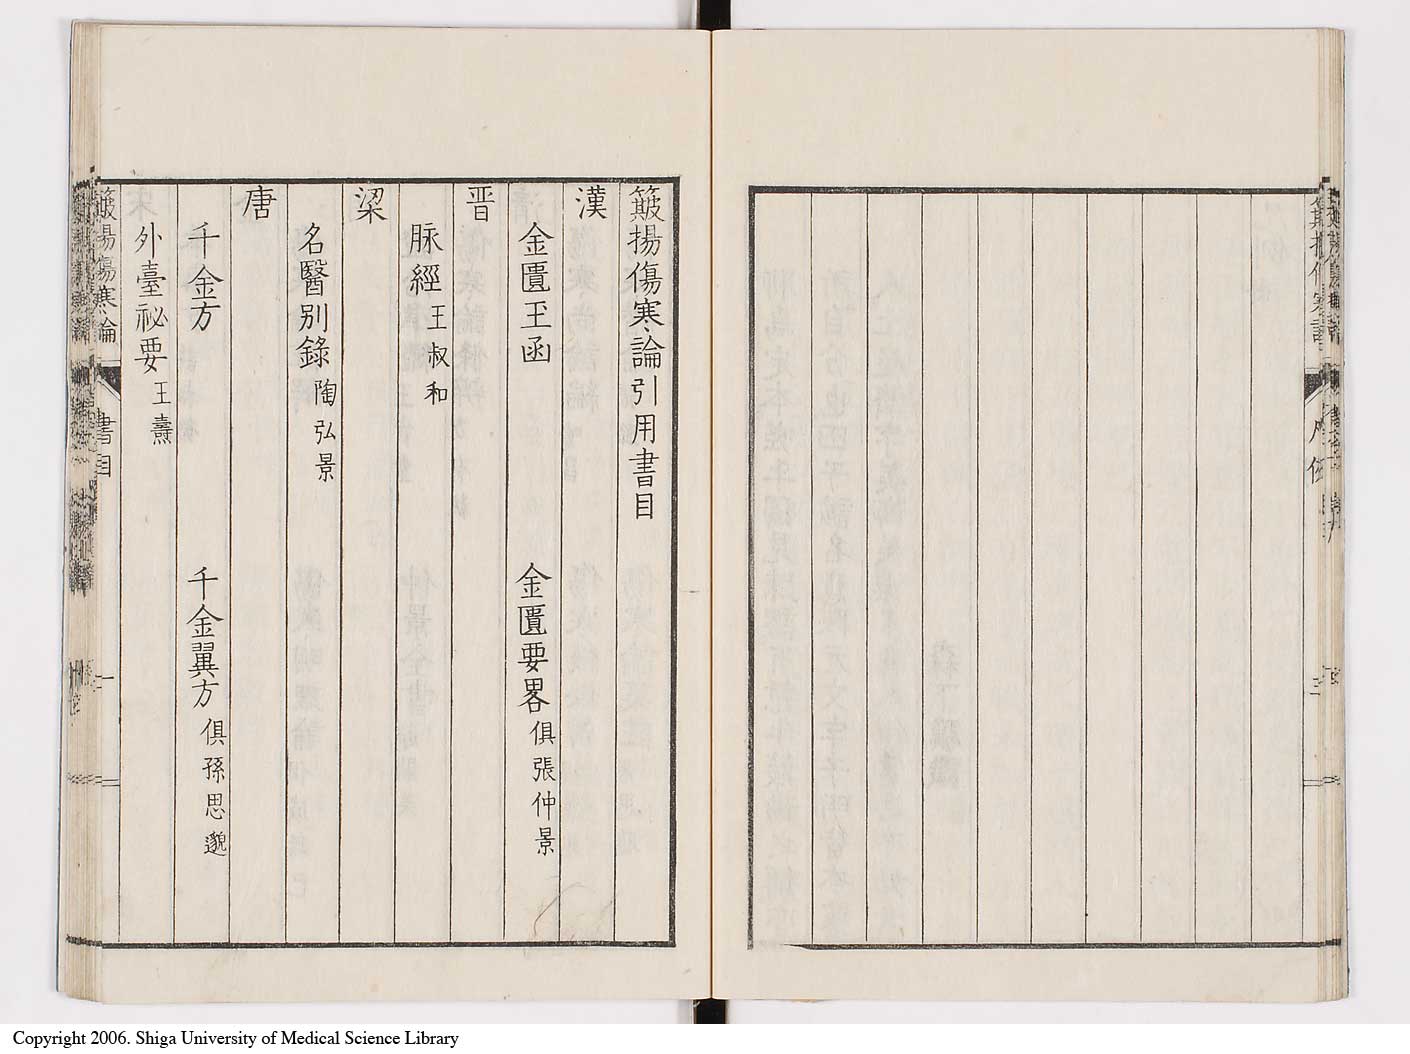 簸揚傷寒論引用書目
漢
金匱玉函 金匱要畧 俱張仲景
晋
脉經 王叔和
梁
名醫别錄 陶弘景
唐
千金方 千金翼方 俱孫思邈
外臺祕要 王燾
簸揚傷寒論 書目 一
Copyright 2006. Shiga University of Medical Science Library